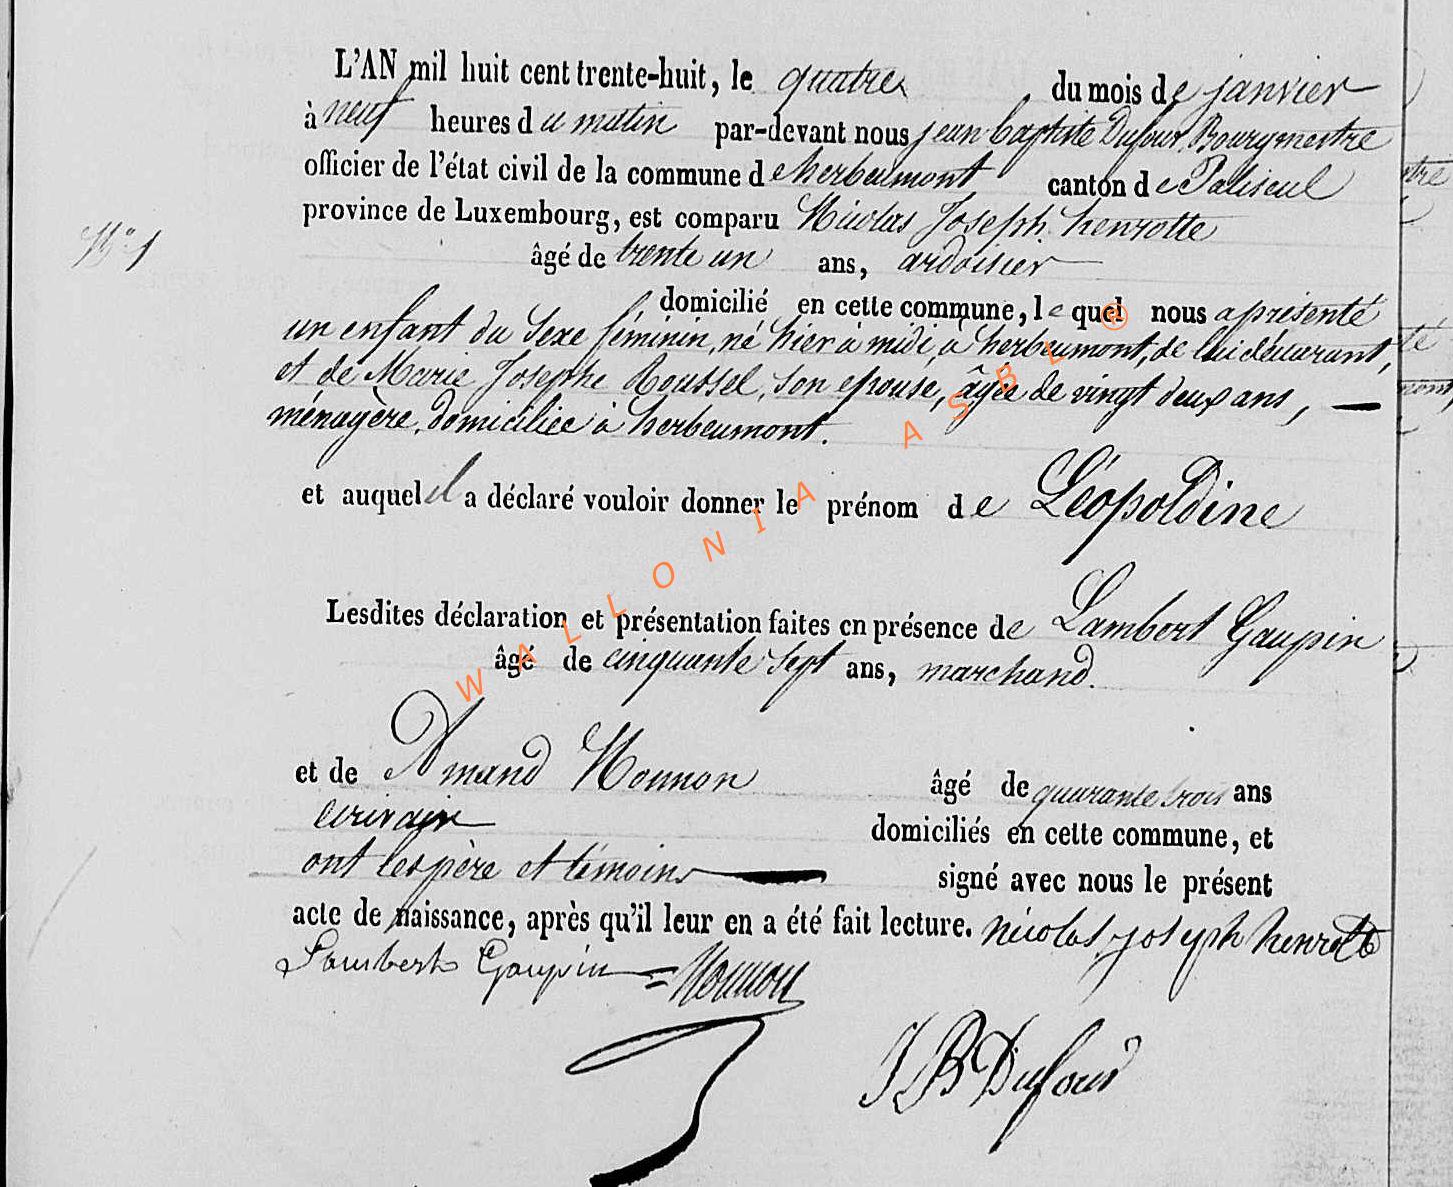 L'AN mil huit cent trente-huit, le quatre du mois de janvier
à neuf heures du matin par-devant nous jean baptiste Dufour, Bourgmestre
officier de l'état civil de la commune de herbeumont canton de Paliseul
province de Luxembourg, est comparu Nicolas Joseph henrotte
N° 1
âgé de trente un ans, ardoisier
domicilié en cette commune, lequel nous a présenté
un enfant du sexe féminin, né hier à midi, à herbeumont, de lui déclarant,
et de Marie Josephe Roussel, son epouse, âgée de vingt deux ans,
ménagère, domiciliée à herbeumont.
et auquel il a déclaré vouloir donner le prénom de Léopoldine
Lesdites déclaration et présentation faites en présence de Lambert Gaupin
âgé de cinquante sept ans, marchand.
et de Amand Nonnon âgé de quarante trois ans
écrivain domiciliés en cette commune, et
ont les père et témoins signé avec nous le présent
acte de naissance, après qu'il leur en a été fait lecture. nicolas joseph henrotte
Lambert Gaupin = Nonnon
J B Dufour
WALLONIA ASBL ®